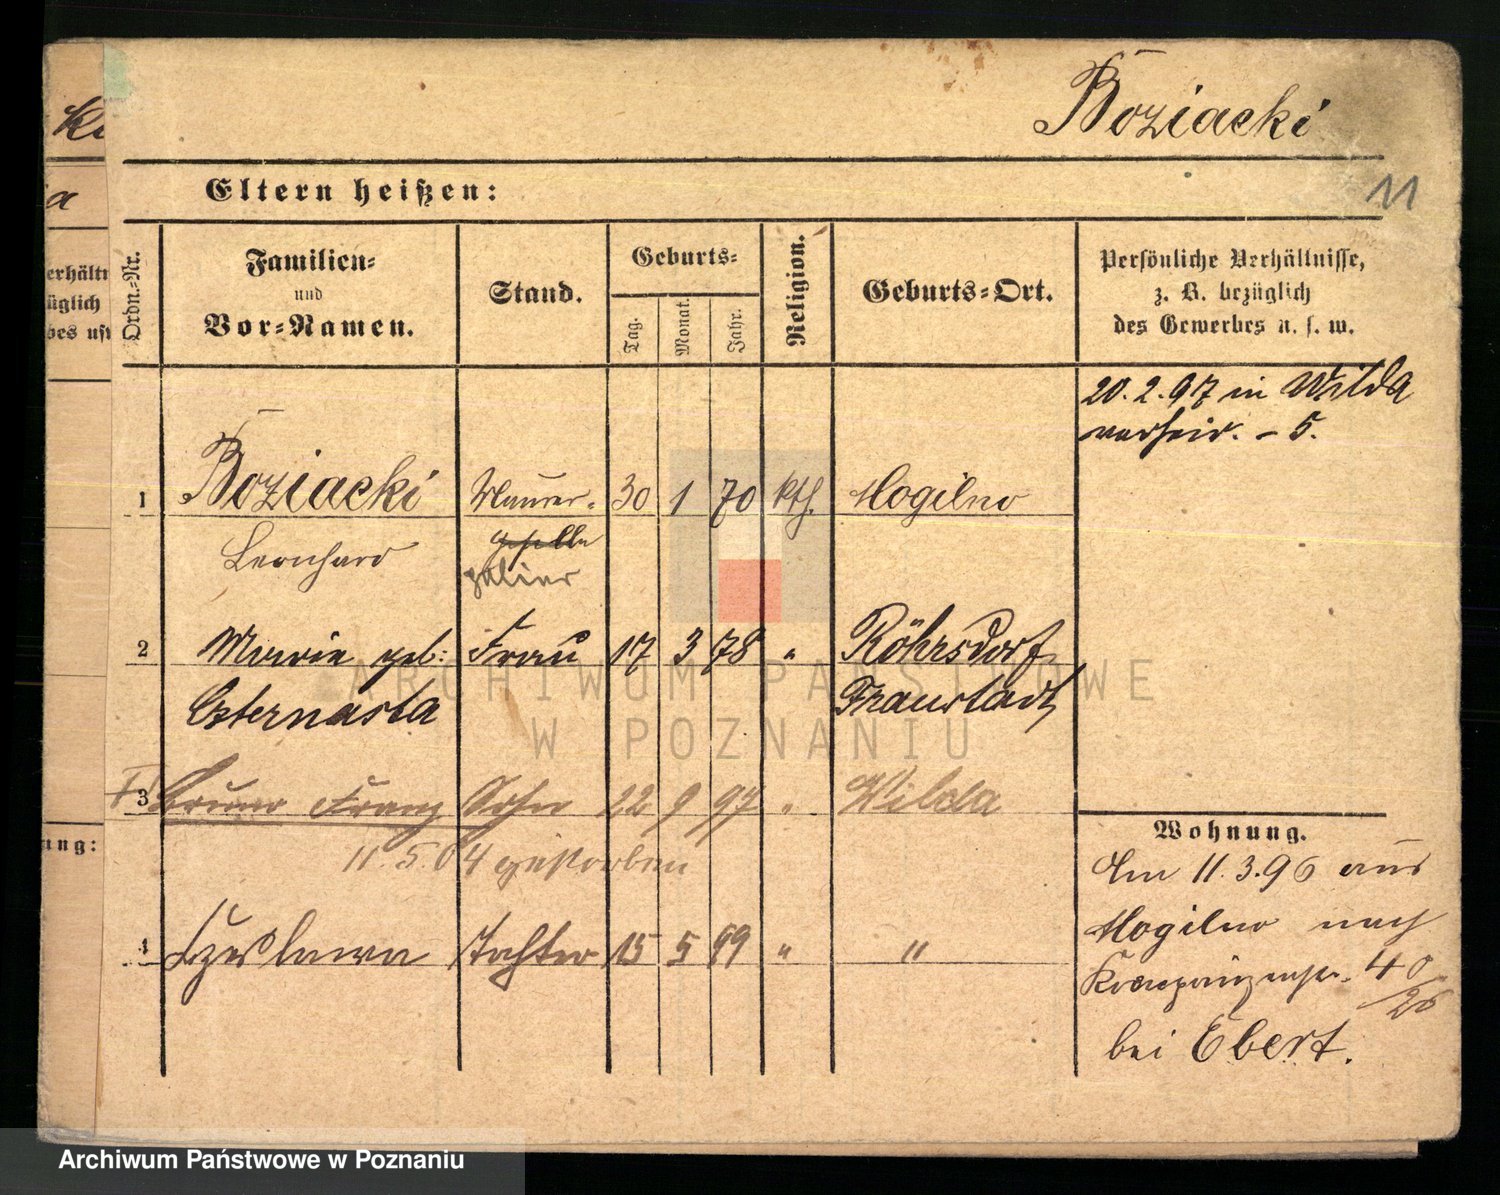 Boziacki
11
Eltern heißen:
Ordn.-Nr.
Familien-
und
Vor-Namen.
Stand.
Geburts-
Tag.
Monat.
Jahr.
Religion.
Geburts-Ort.
Persönliche Verhältnisse,
z. B. bezüglich
des Gewerbes u. s. w.
20.2.97 in Wilda
verheir. - 5.
1 Boziacki Maurer- 30 1 70 kth. Mogilno
Leonhard geselle
polier
2 Marie geb: Frau 17 3 78 " Röhrsdorf
Czternasta Fraustadt
3 Bruno Franz Sohn 22 9 97 " Wilda
11.5.04 gestorben
4 Czeslawa Tochter 15 5 99 " "
Wohnung.
Am 11.3.96 aus
Mogilno nach
Kronprinzenstr. 40
/26
bei Ebert.
erhältn
üglich
bes usw
ung:
ARCHIWUM PAŃSTWOWE
W POZNANIU
Archiwum Państwowe w Poznaniu